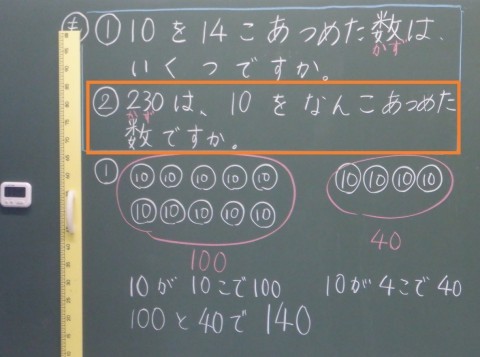 も ① 10を14こあつめた数は、
かず
いくつですか。
② 230は、10をなんこあつめた
かず
数ですか。
①
10 10 10 10 10
10 10 10 10
10 10 10 10 10
100
40
10が10こで100
10が4こで40
100と40で140